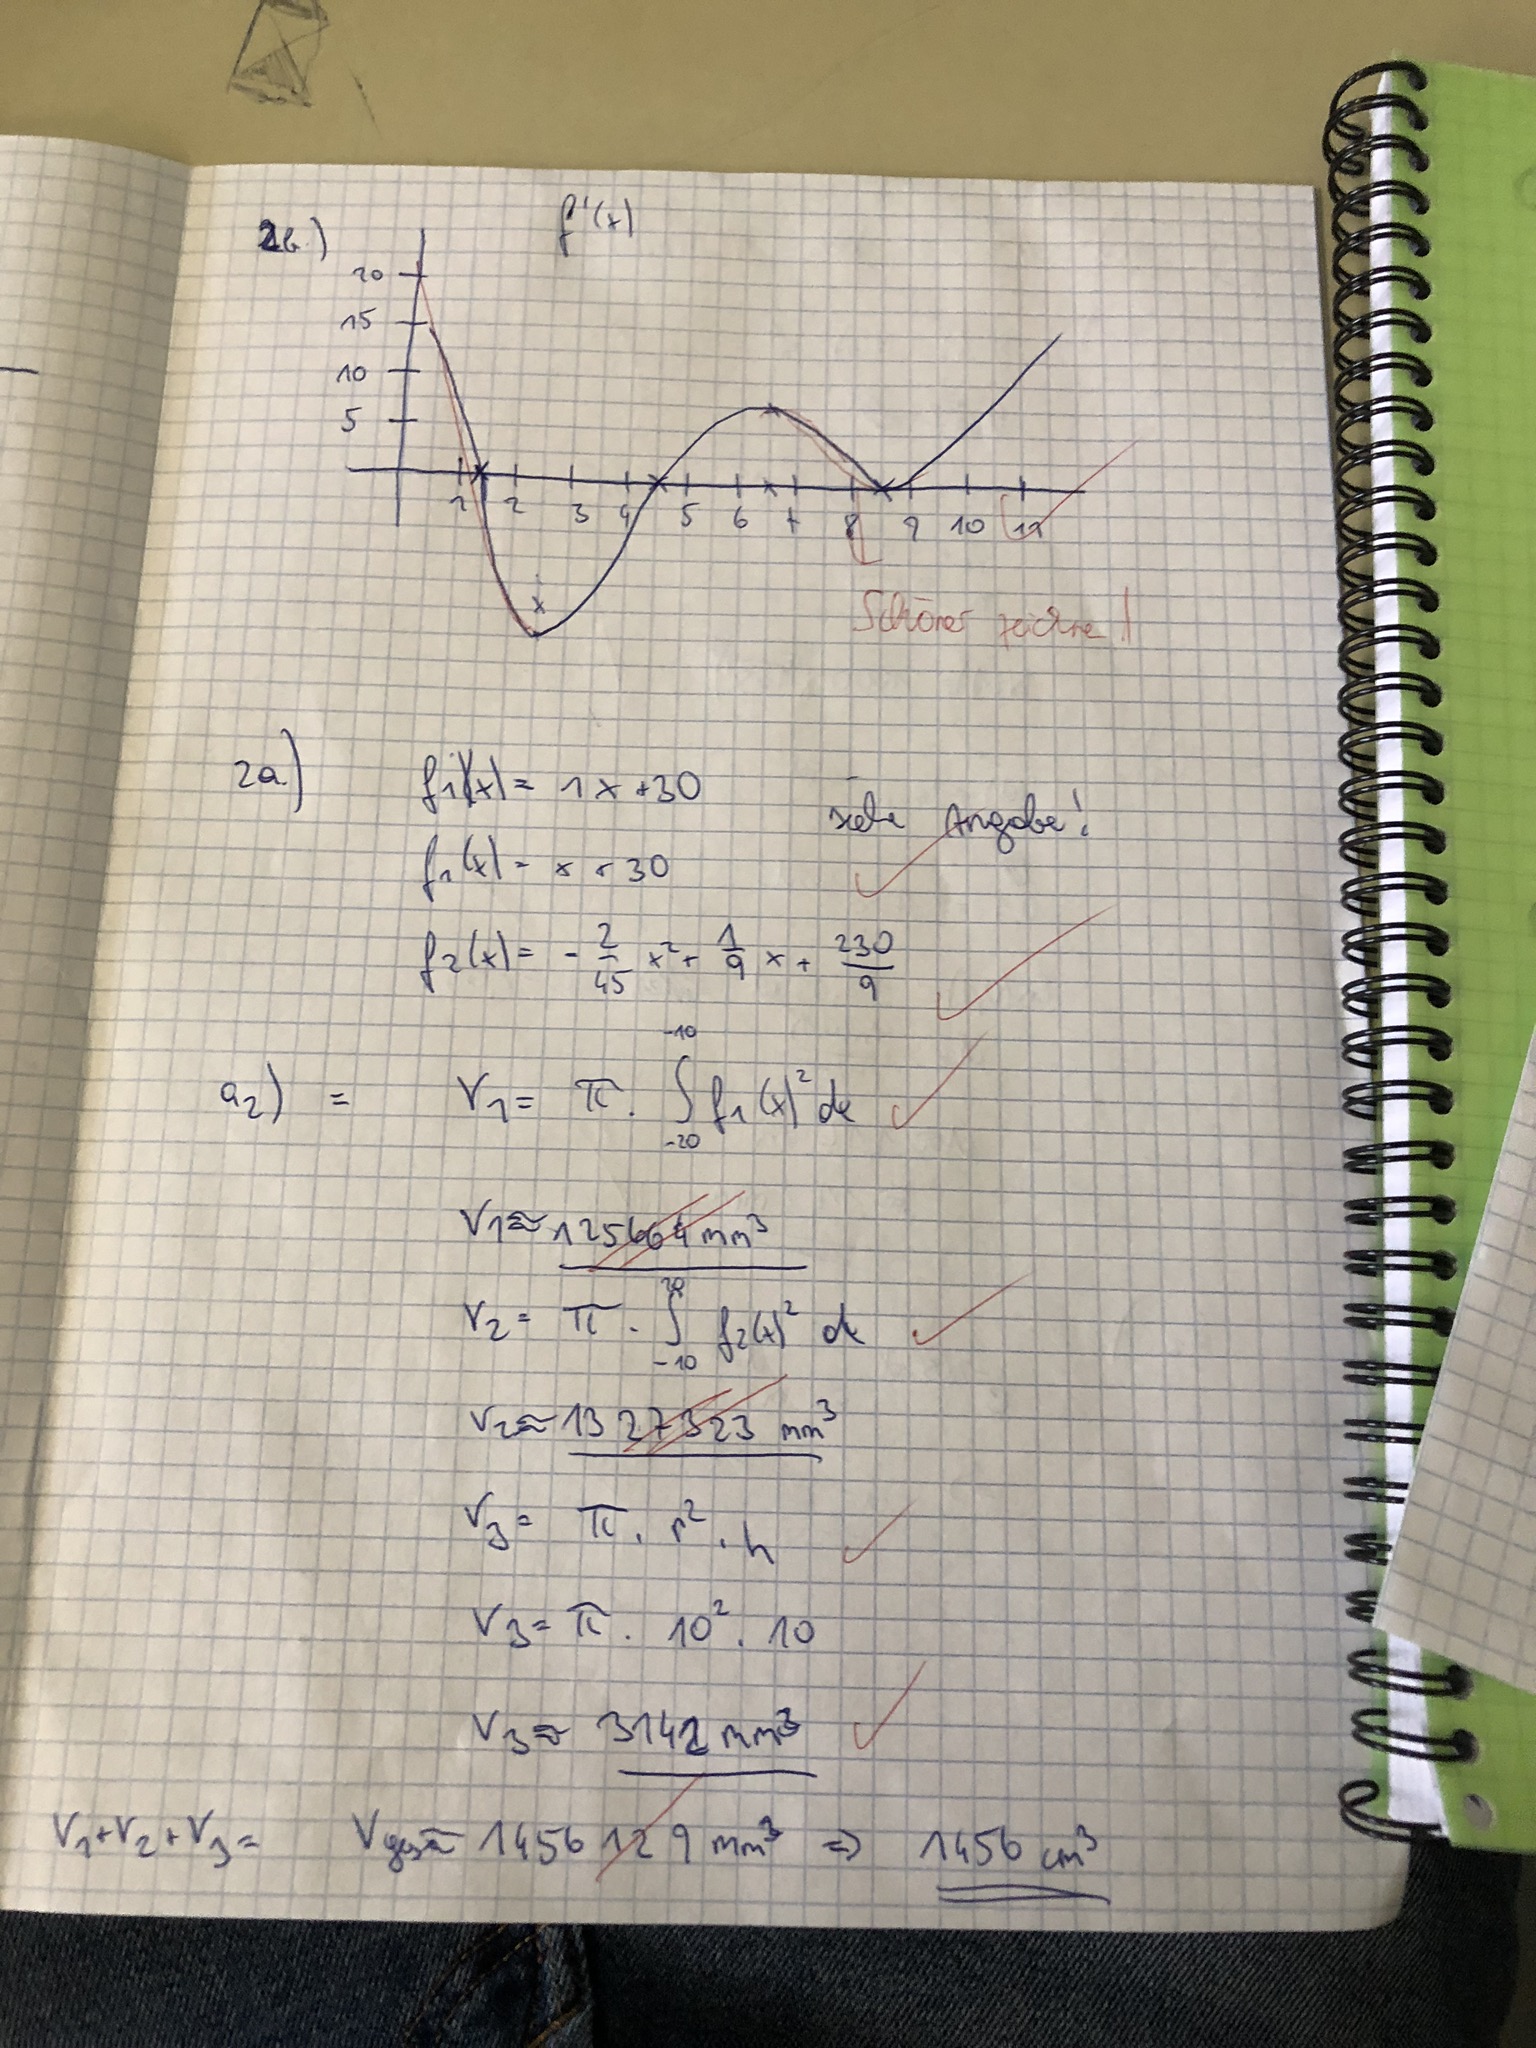 2b.) f'(x)
20
15
10
5
1 2 3 4 5 6 7 8 9 10 12
Schöner zeichne!
2a) f1(x) = 1x + 30 siehe Angabe!
f1(x) = x + 30
f2(x) = - 2/45 x² + 1/9 x + 230/9
a2) = V1 = π · ∫ -20 -10 f1(x)² dx
V1 ≈ 125664 mm³
V2 = π · ∫ -10 20 f2(x)² dx
V2 ≈ 1327323 mm³
V3 = π · r² · h
V3 = π · 10² · 10
V3 ≈ 3142 mm³
V1+V2+V3 = Vges ≈ 1456129 mm³ ⇒ 1456 cm³